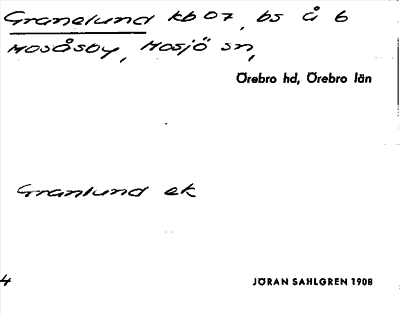 Granelund kb 07, bs å 6
Mosåsby, Mosjö sn,
Örebro hd, Örebro län
Granlund ek
4
JÖRAN SAHLGREN 1908